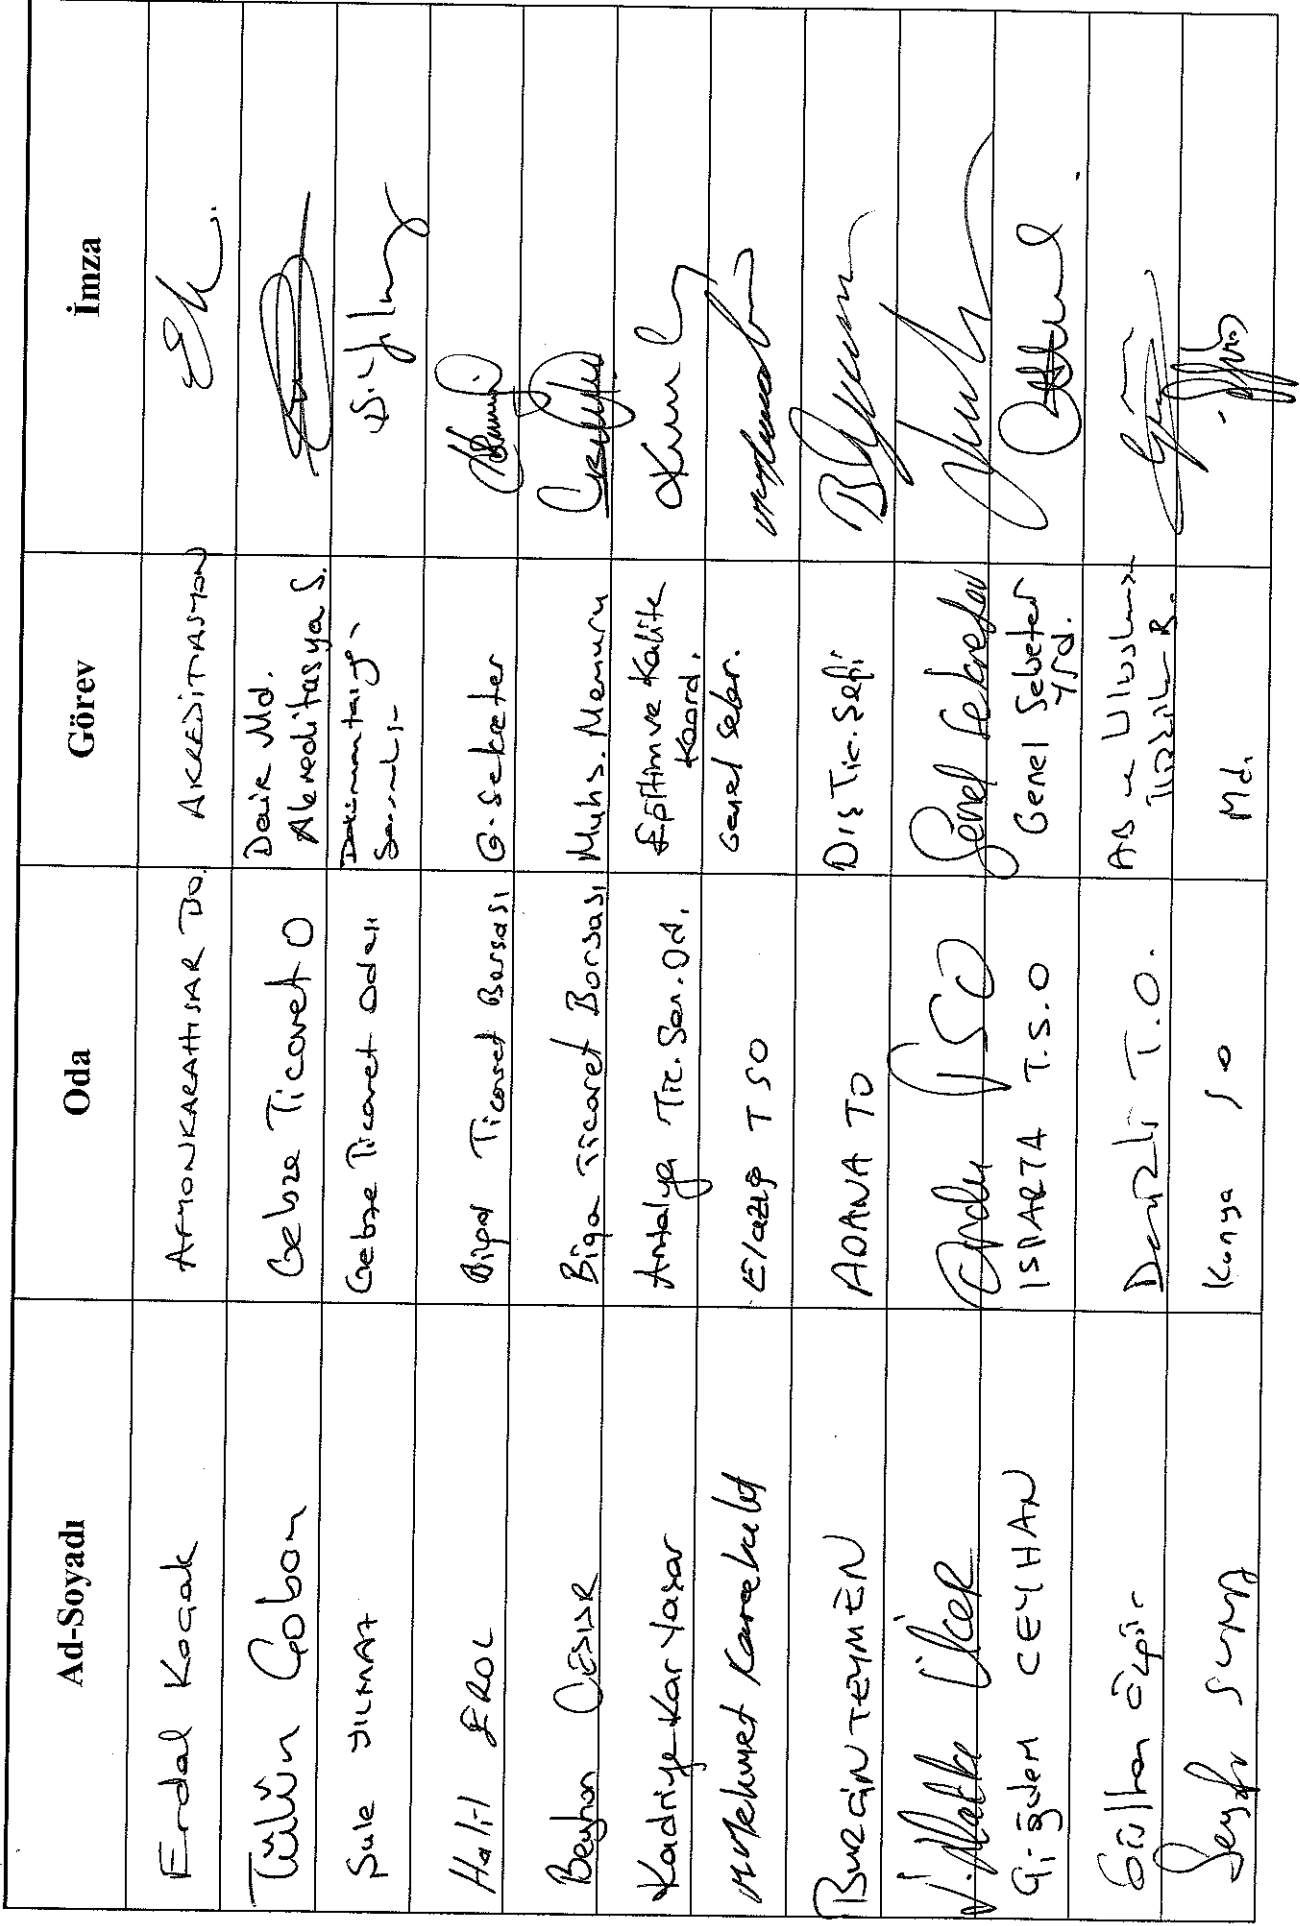 Ad-Soyadı Oda Görev İmza
Erdal Koçak AFYONKARAHİSAR TO. AKREDİTASYON
Tülin Çoban Gebze Ticaret O Daire Md.
Akreditasyon S.
Şule YILMAZ Gebze Ticaret Odası
Halil EROL Biga Ticaret Borsası G. Sekreter
Beyhan CESUR Biga Ticaret Borsası Muhs. Memuru
Kadriye Kar Yaşar Antalya Tic. San. Od. Eğitim ve Kalite
Koord.
Mehmet Karabulut Elazığ TSO Genel Sekr.
BURÇİN TEYMEN ADANA TO Dış Tic. Şefi
Ordu TSO Genel Sekreter
Çiğdem CEYHAN ISPARTA T.S.O Genel Sekreter
Yrd.
Denizli T.O.
Konya SO Md.